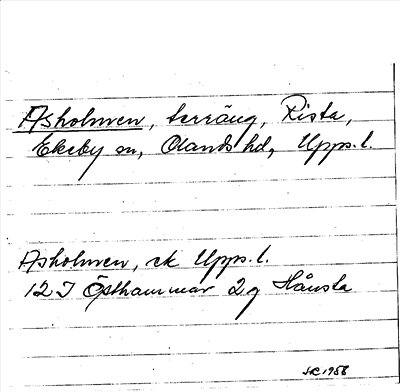 Asholmen, terräng, Rista,
Ekeby sn, Olands hd, Upps. l.
Asholmen, ek Upps. l.
12 I Östhammar 2g Hånsta
1958